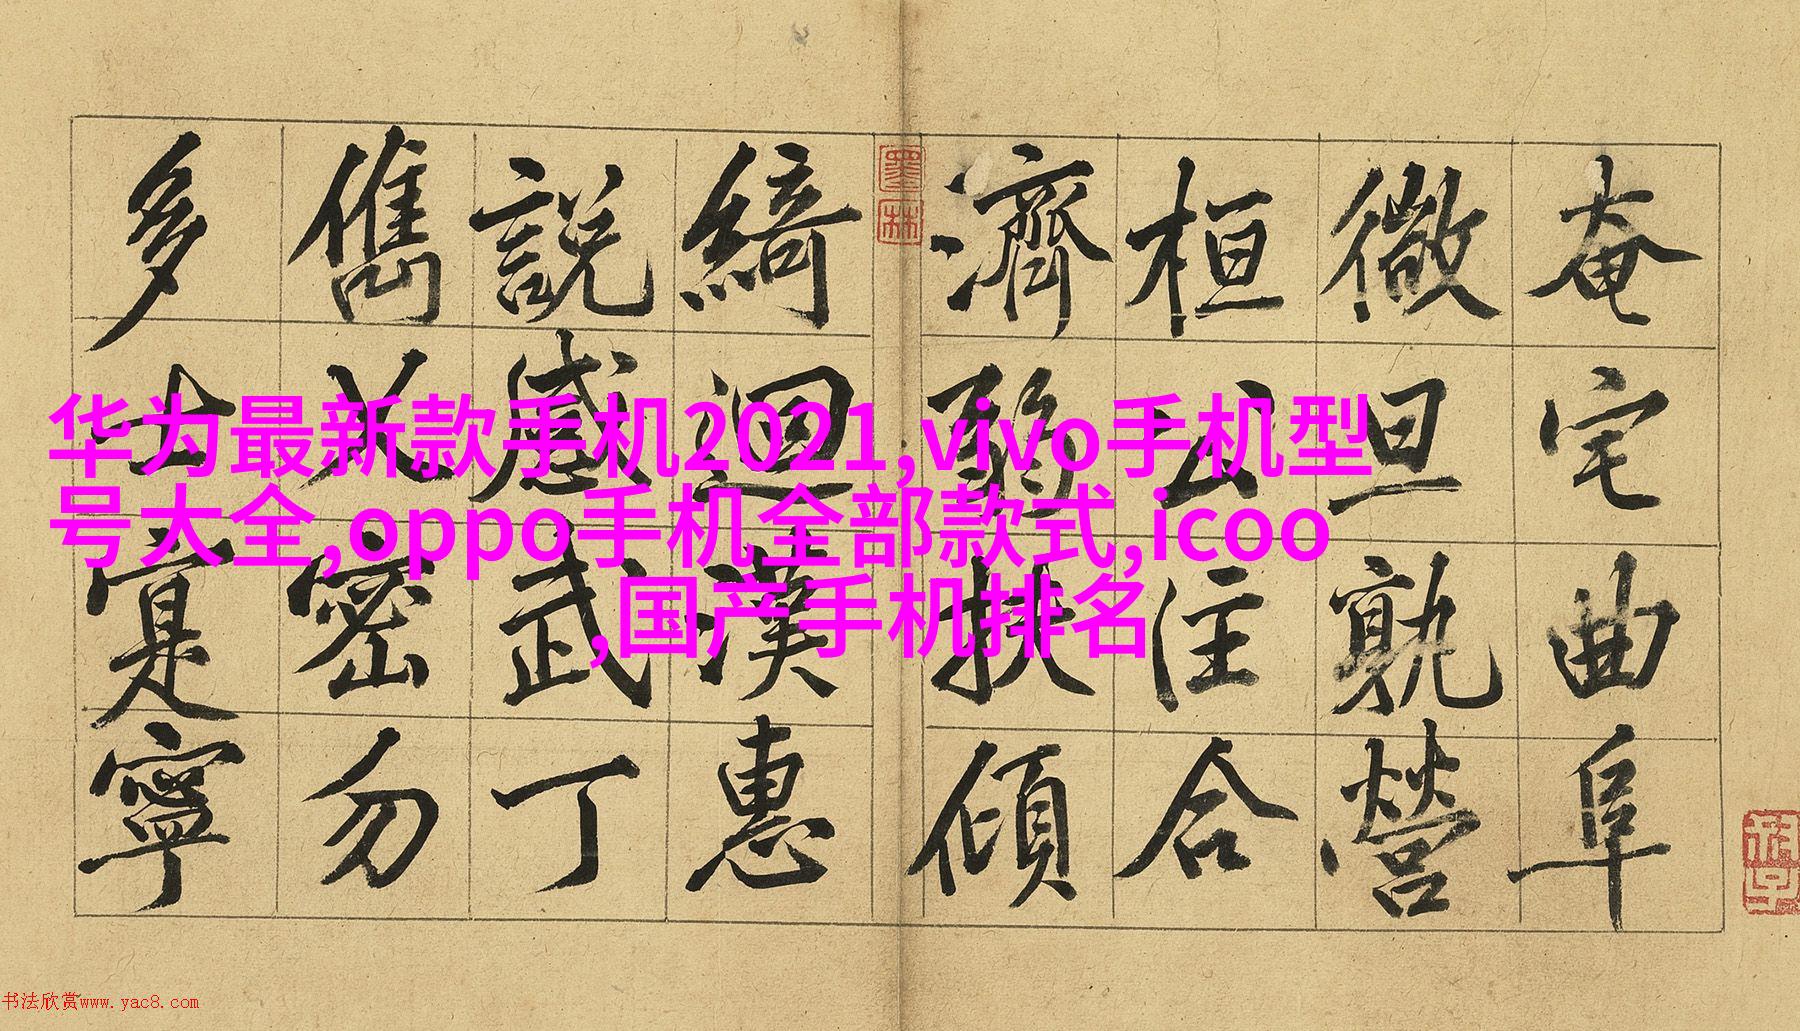 奄宅曲阜
微旦孰營
桓公注合
濟弱扶傾
綺迴漢惠
說感武丁
儁乂密勿
多士寔寧
墨林
华为最新款手机2021,vivo手机型
号大全,oppo手机全部款式,icoo
,国产手机排名
书法欣赏www.yac8.com